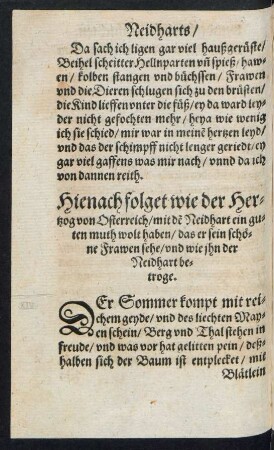 Neidharts/
Da sach ich ligen gar viel haußgerüste/
Beihel scheitter Hellnparten vñ spieß/ haw-
en/ kolben stangen vnd büchssen/ Frawen
vnd die Dieren schlugen sich zu den brüsten/
die Kind lieffen vnter die füß/ ey da ward ley-
der nicht gefochten mehr/ heya wie wenig
ich sie schied/ mir war in meinẽ hertzen leyd/
vnd das der schimpff nicht lenger geriedt/ ey
gar viel gaffens was mir nach/ vnnd da ich
von dannen reith.
Hienach folget wie der Her-
tzog von Osterreich/ mit dẽ Neidhart ein gu-
ten muth wolt haben/ das er sein schö-
ne Frawen sehe/ vnd wie jhn der
Neidhart be-
troge.
DEr Sommer kompt mit rei-
chem geyde/ vnd des liechten May-
en schein/ Berg vnd Thal stehen in
freude/ vnd was vor hat gelitten pein/ deßt-
halben sich der Baum ist entplecket/ mit
Blätlein